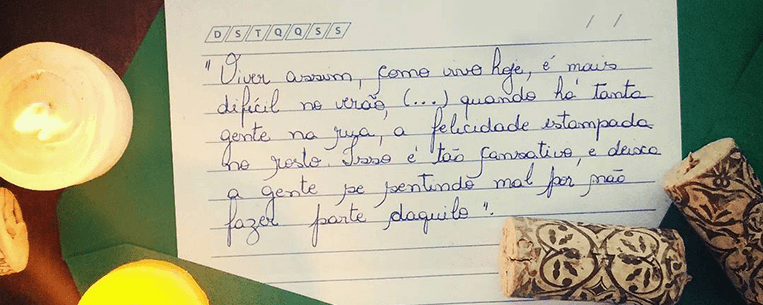 D S T Q Q S S / /
"Viver assim, como vivo hoje, é mais
difícil no verão, (...) quando há tanta
gente na rua, a felicidade estampada
no rosto. Isso é tão cansativo, e deixa
a gente se sentindo mal por não
fazer parte daquilo".